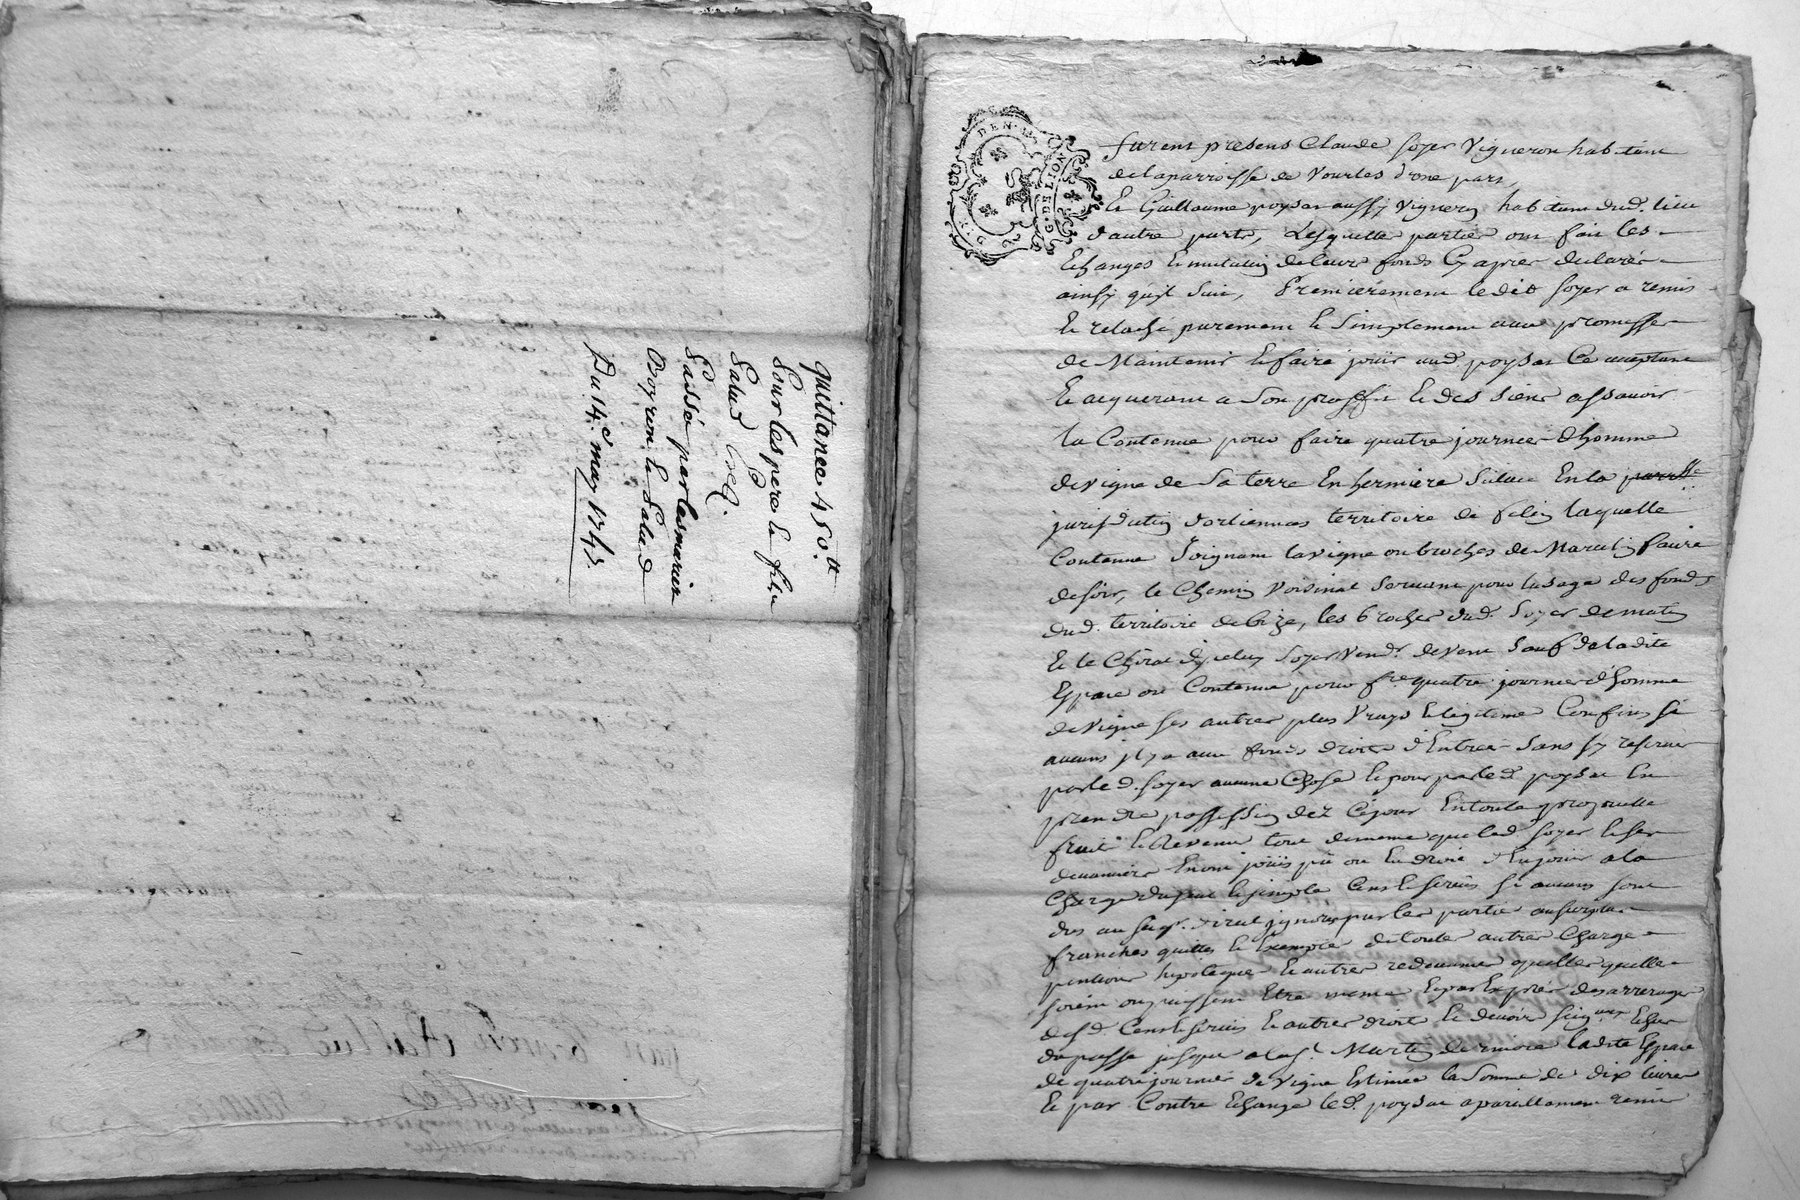 quittance 450.tt
Pour les pere & fils
Salud
Passée par les mariés
Boyron & Salud
Du 14.e may 1745
DEN.
G. DE LION
furent presens Claude soyer Vigneron habitant
de la parroisse de Vourles d'une part,
Et Guillaume poysat aussy Vigneron habitant dud. lieu
d'autre part, Lesquelles parties ont fait les
Echanges & mutation de leurs fonds Cy apres declarés
ainsy qu'il suit, Premierement ledit soyer a remis
Et relaché purement & simplement avec promesse
de Maintenir & faire joüir aud. poysat Ce acceptant
Et acquerant a son proffit & des siens assavoir
la Contenue pour faire quatre journées d'homme
de vigne de sa terre En hermiere Situé En la parroisse
jurisdiction d'orliennas territoire de felin laquelle
Contenue Joignant la vigne ou broches de faure
de soir, le Chemin Voisinal servant pour l'usage des fonds
dud. territoire de bize, les brosses dud. soyer de matin
Et le Chirat d'jceluy soyer Vendr. de vent sauf de ladite
Espace ou Contenue pour f.re quatre journées d'homme
de vigne ses autres plus Vrays & legitimes Confins si
aucuns jl y a avec fonds droits d'Entrées sans s'y reserver
par led. soyer aucune Chose & pour par led. poysat En
prendre possession dez Cejour En toute proprieté
fruit & Revenu tout de meme que led. soyer & ses
devanciers En ont joüis pû ou En droit d'En joüir a la
Charge du seul & simple Cens & servis si aucuns sont
dus au seigr. direct jgnoré par les parties au surplus
franches quittes & Exemptes de toutes autres Charges
pentions hipoteques & autres redevances quelles quelles
soient ou puissent Etre meme & par Exprés des arrerages
desd. Cens & servis & autres droits & devoirs seig.aux Echus
du passé jusques a la s.t Martin derniere ladite Espace
de quatre journées de vigne Estimée la somme de dix livres
Et par Contre Echange led. poysat a pareillement remis